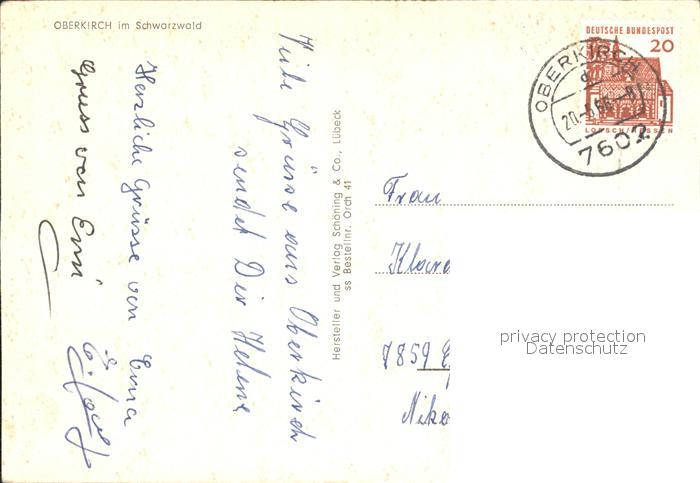 OBERKIRCH im Schwarzwald
Viele Grüsse aus Oberkirch
sendet Dir Helene
Herzliche Grüsse von Erna
Gruss von Emi
Hersteller und Verlag Schöning & Co., Lübeck
ss Bestellnr. Orch 41
DEUTSCHE BUNDESPOST
20
LORSCH/HESSEN
OBERKIRCH
20.
66
7602
Frau
Klara
7859
Niko
privacy protection
Datenschutz